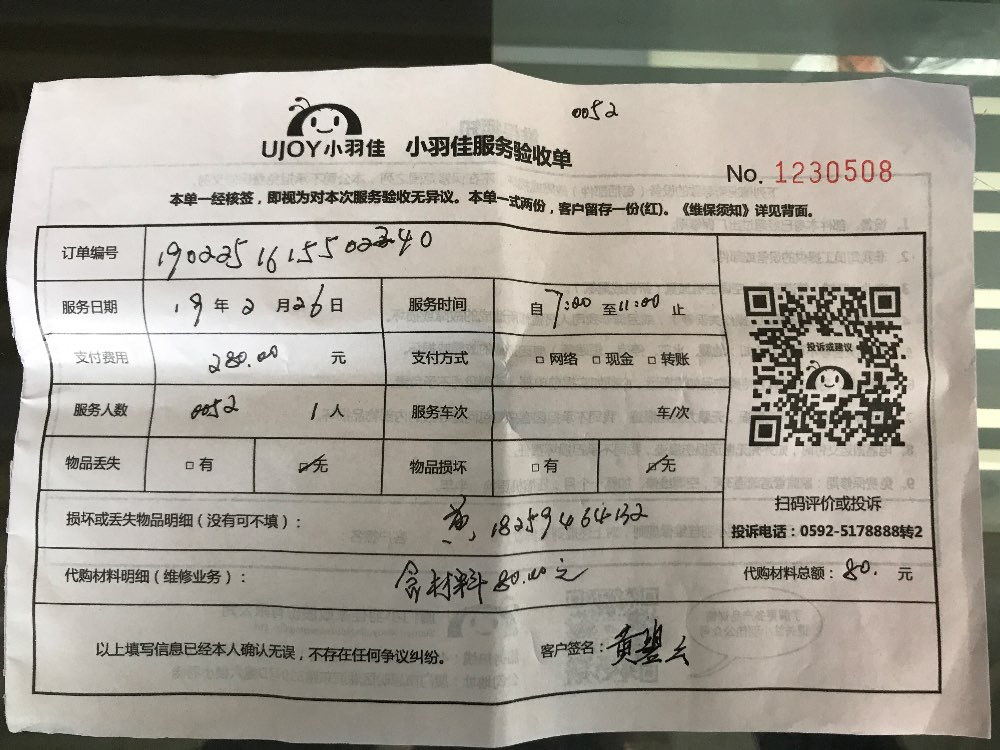 0052
UJOY小羽佳 小羽佳服务验收单
No. 1230508
本单一经核签，即视为对本次服务验收无异议。本单一式两份，客户留存一份(红)。《维保须知》详见背面。
订单编号
服务日期 19 年 2 月 26 日 服务时间 自 7:00 至 11:00 止
支付费用 280.00 元 支付方式 □ 网络 □ 现金 □ 转账
投诉或建议
服务人数 0052 1 人 服务车次 车/次
物品丢失 □ 有 ☑ 无 物品损坏 □ 有 ☑ 无
扫码评价或投诉
损坏或丢失物品明细（没有可不填）： 18259464132
投诉电话：0592-5178888转2
代购材料明细（维修业务）： 含材料80.00元 代购材料总额：80. 元
以上填写信息已经本人确认无误，不存在任何争议纠纷。 客户签名：黄